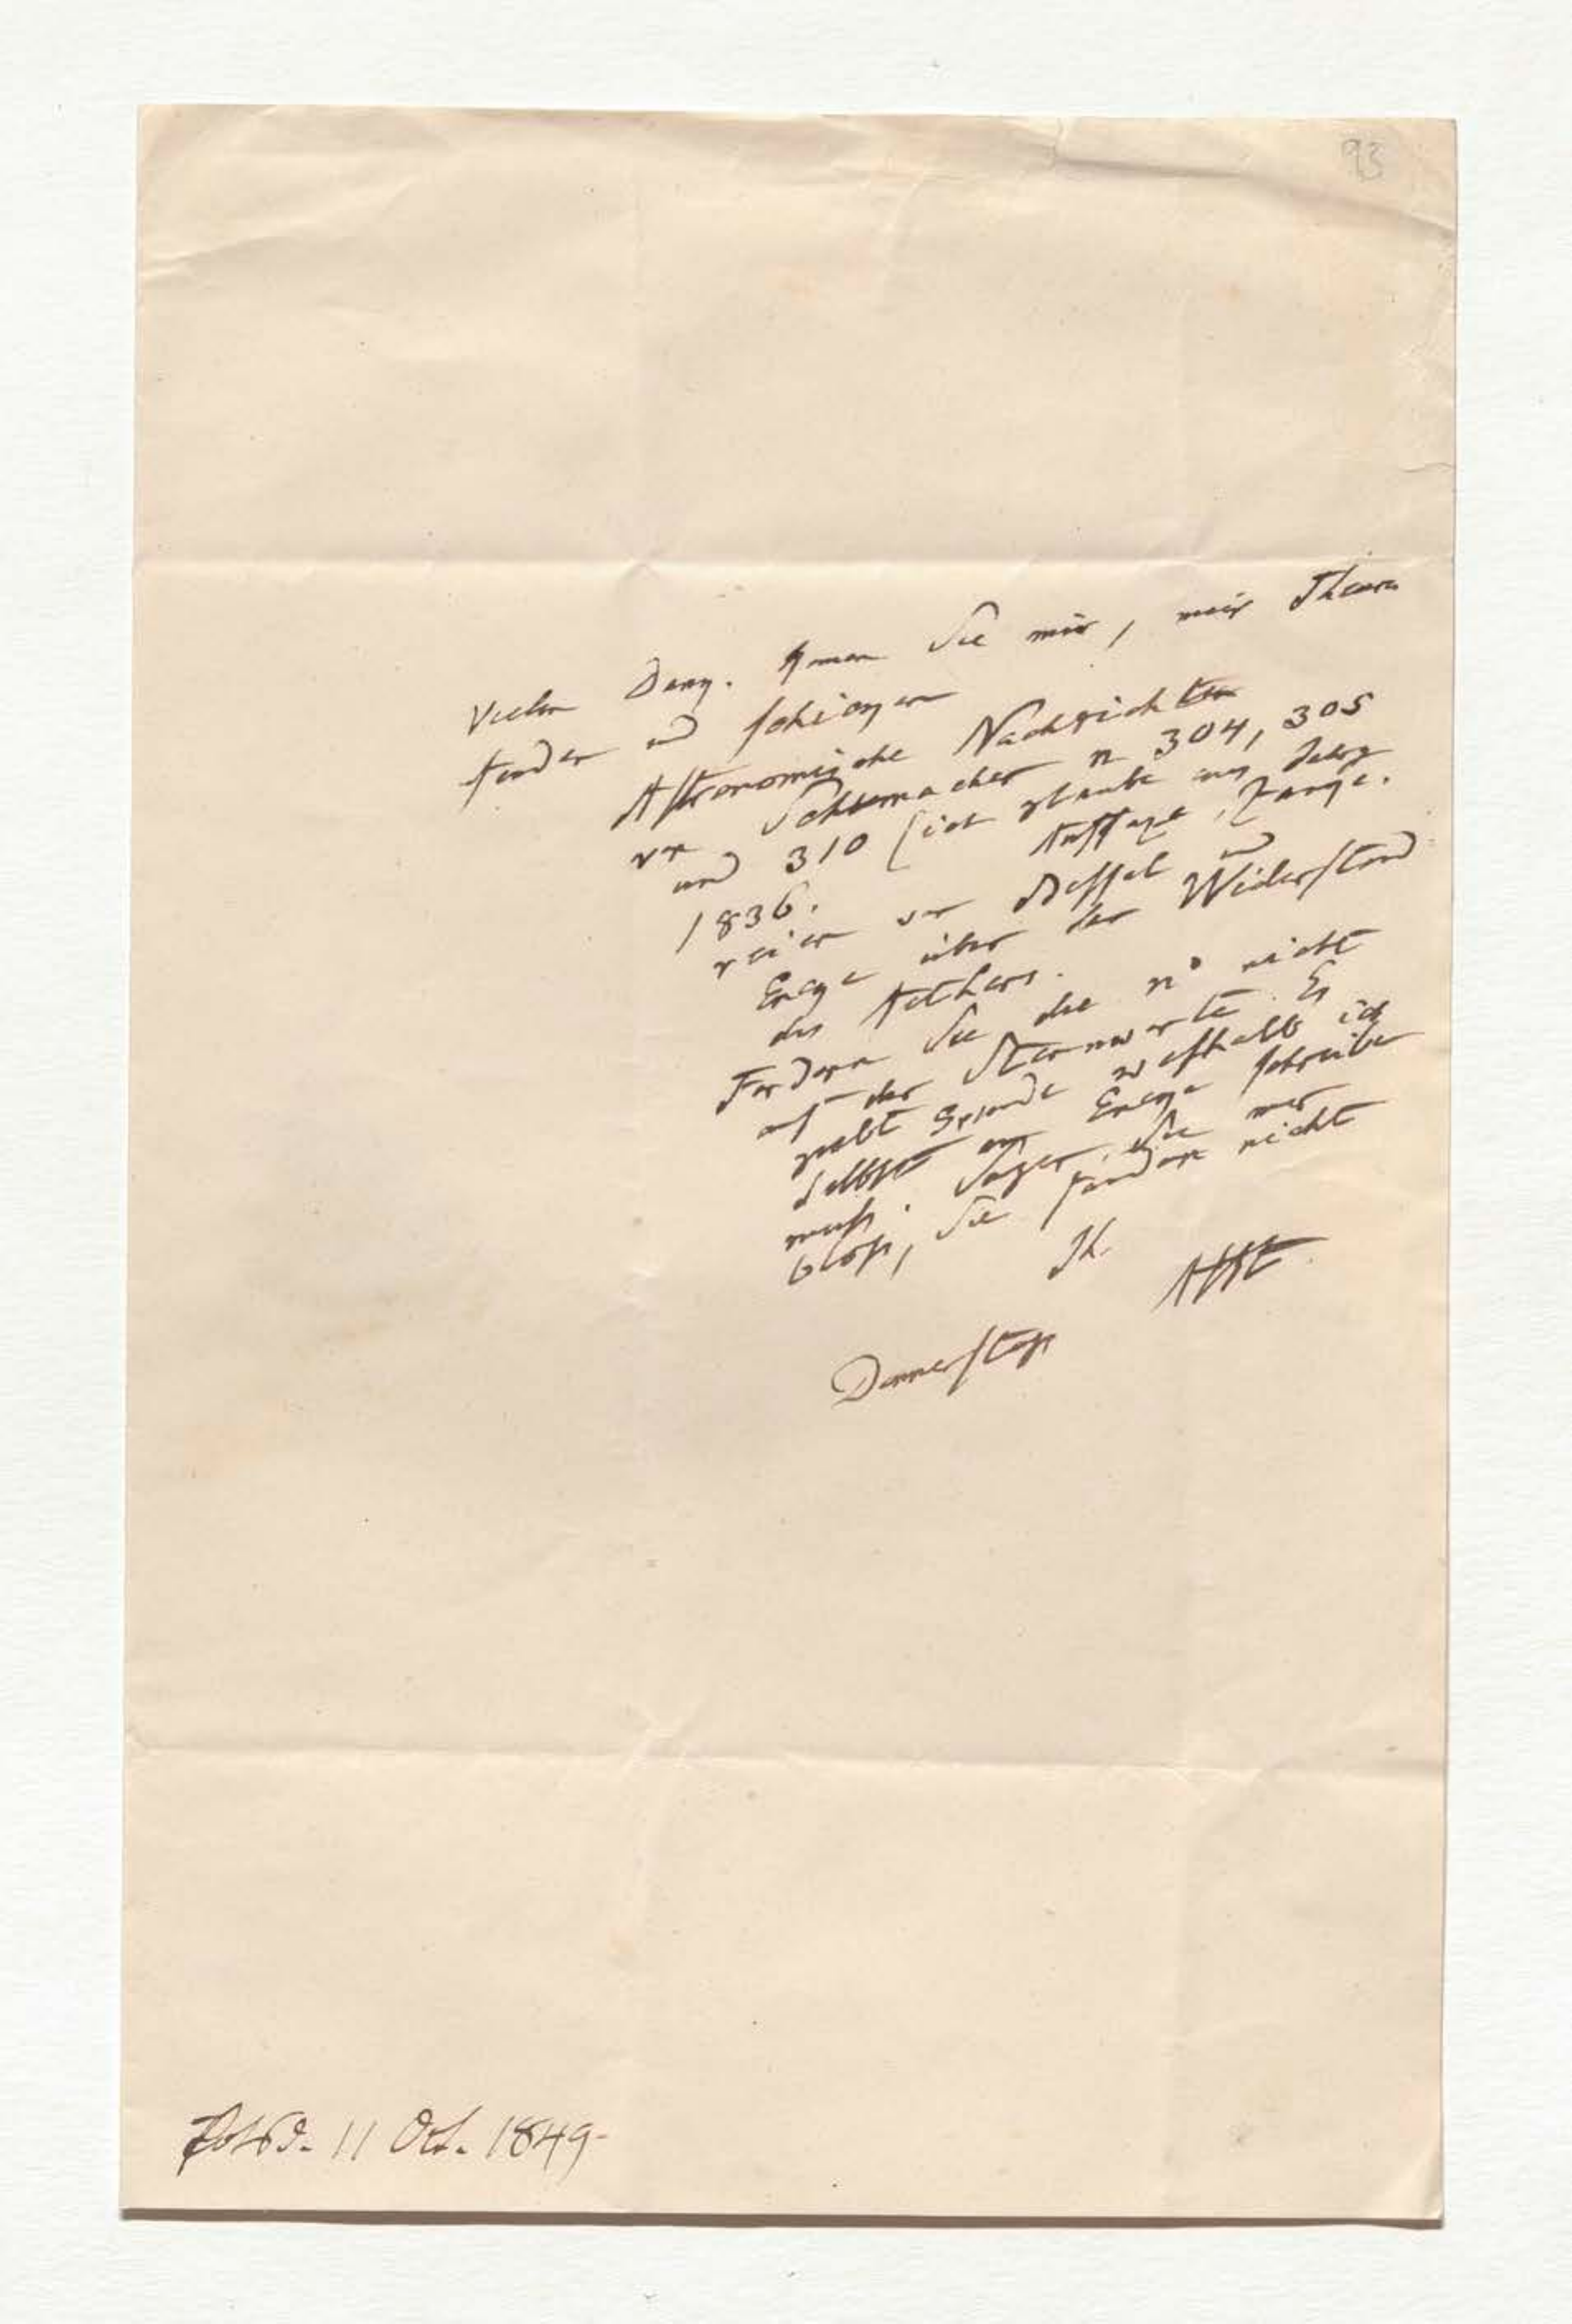 93
Vielen Dank. Können Sie mir, mein Theurer
finden und schicken
Astronomische Nachrichten
von Schumacher n 304, 305
und 310 (ich glaube aus Jahrg
1836.
von Bessel und
Encke über den Widerstand
des Aethers.
Fordern Sie die n° nicht
auf der Sternwarte. Es
giebt Gründe weshalb ich
selbst an Encke schreiben
muß. Sagen Sie mir
bloß, Sie fänden nicht
Ih
AHt
Donnerstags
11 Oct. 1849.